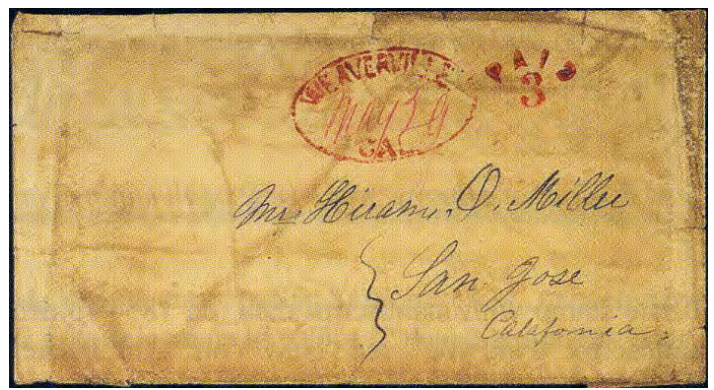 WEAVERVILLE
May 29
CAL
PAID
3
Mr. Hiram. O. Miller
San Jose
Calafornia.